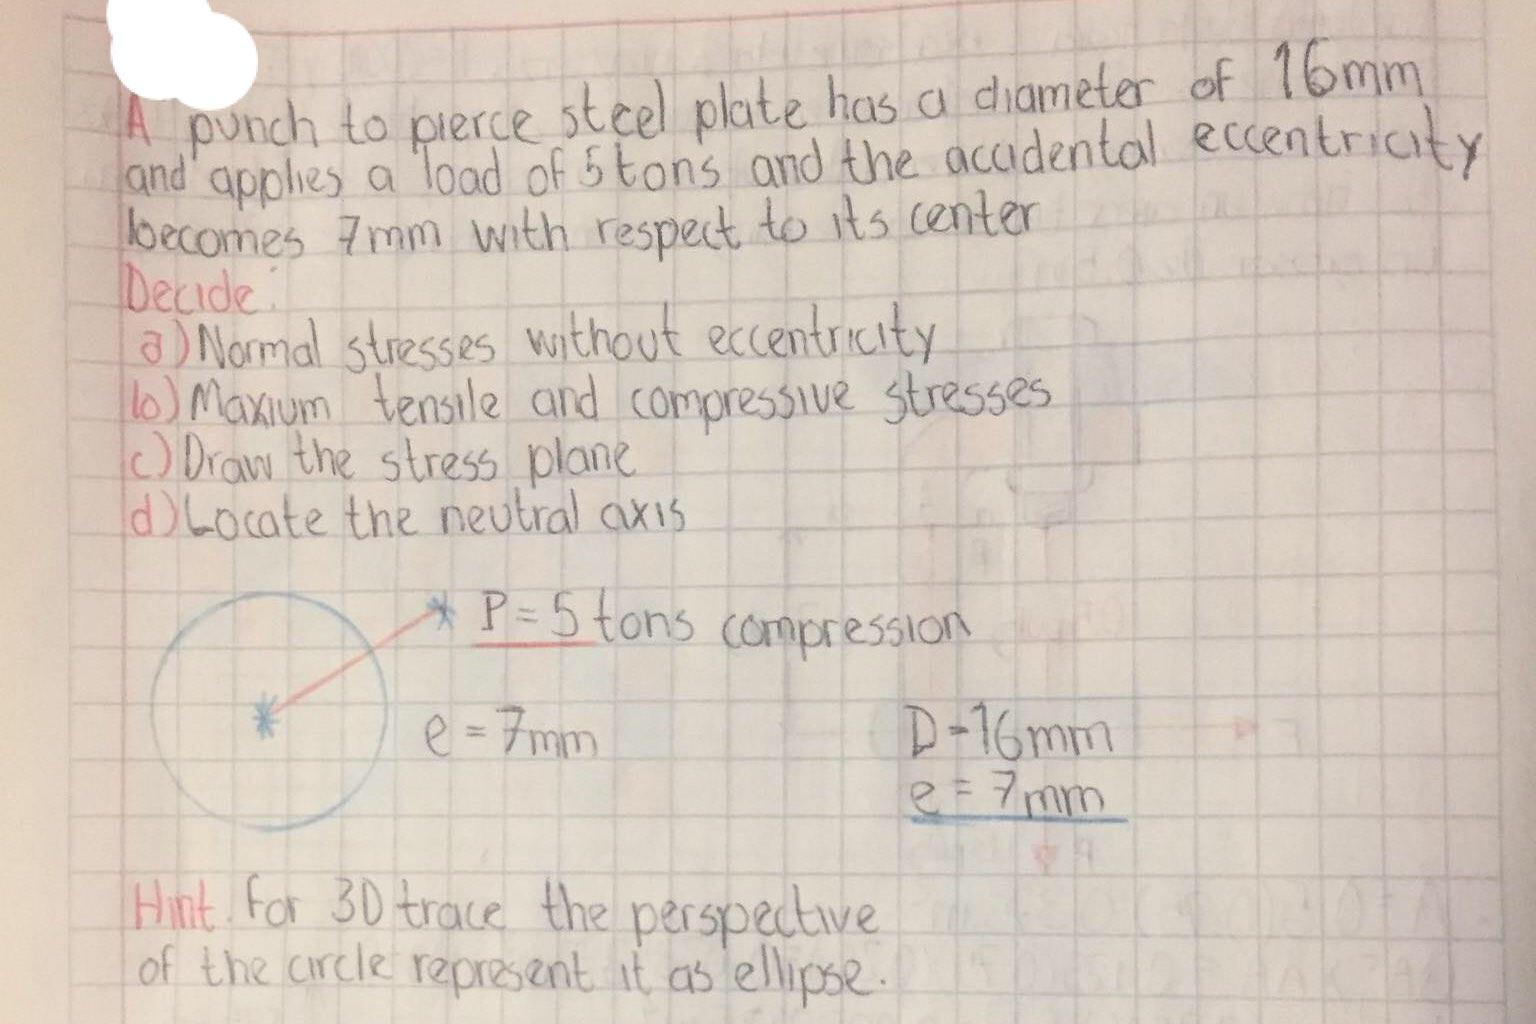 A punch to pierce steel plate has a diameter of 16mm
and applies a load of 5tons and the accidental eccentricity
becomes 7mm with respect to its center
Decide:
a) Normal stresses without eccentricity
b) Maxium tensile and compressive stresses
c) Draw the stress plane
d) Locate the neutral axis
P=5 tons compression
e = 7mm
D=16mm
e = 7mm
Hint. For 3D trace the perspective
of the circle represent it as ellipse.